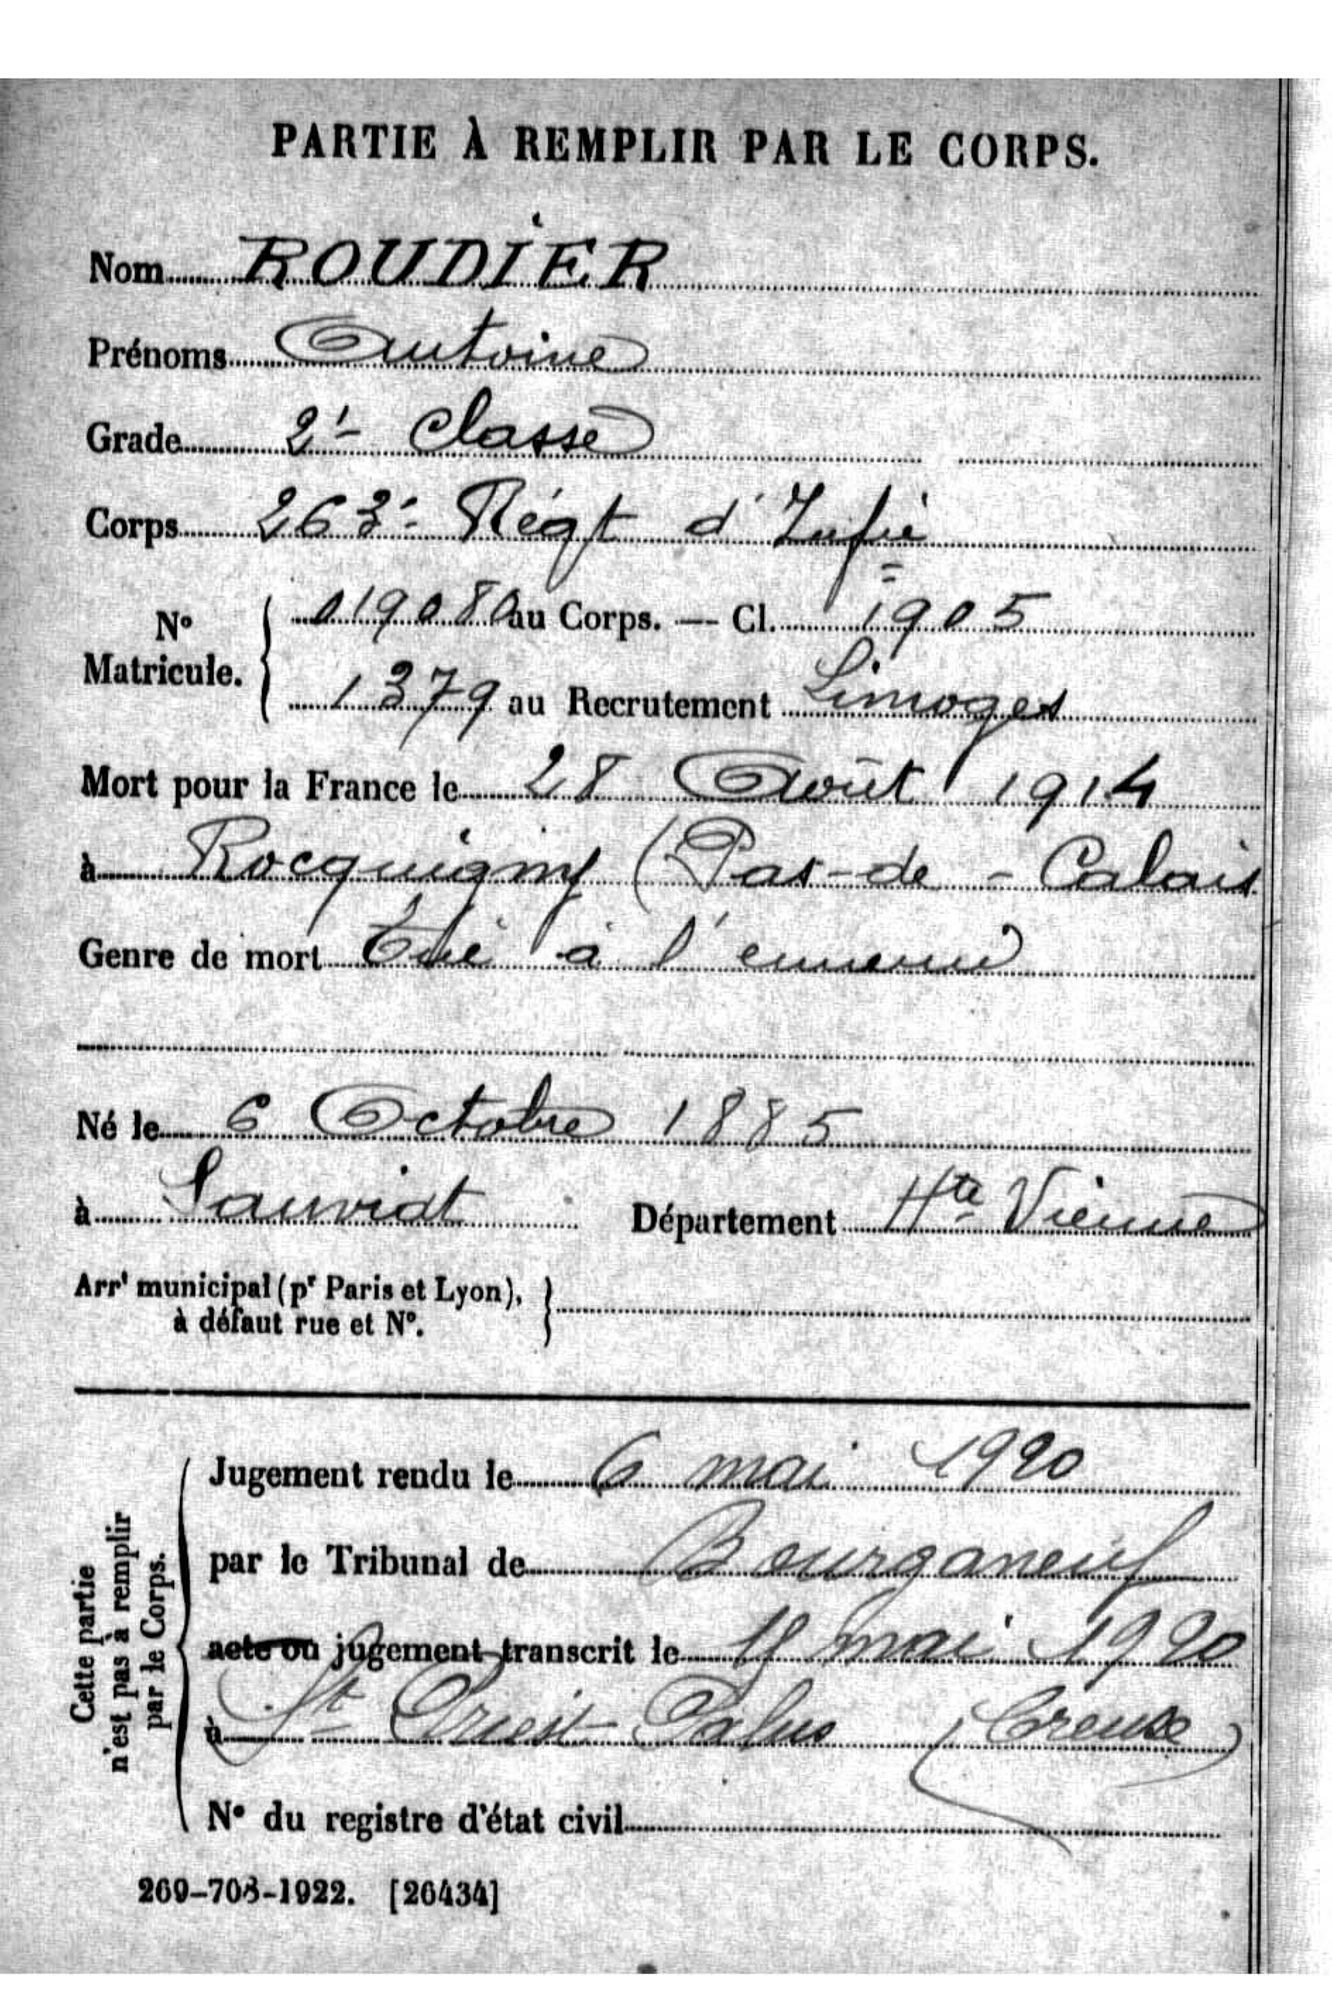 PARTIE À REMPLIR PAR LE CORPS.
Nom ROUDIER
Prénoms Antoine
Grade 2e classe
Corps 263e Régt d'Infie
No Matricule. 019080 au Corps. — Cl. 1905
1379 au Recrutement Limoges
Mort pour la France le 28 Août 1914
à Rocquigny (Pas-de-Calais
Genre de mort Tué à l'ennemi
Né le 6 Octobre 1885
à Sauviat Département Hte Vienne
Arrt municipal (pr Paris et Lyon),
à défaut rue et No.
Cette partie
n'est pas à remplir
par le Corps.
Jugement rendu le 6 mai 1920
par le Tribunal de Bourganeuf
acte ou jugement transcrit le mai 1920
à St Priest Palus (Creuse)
No du registre d'état civil
269-708-1922. [26434]